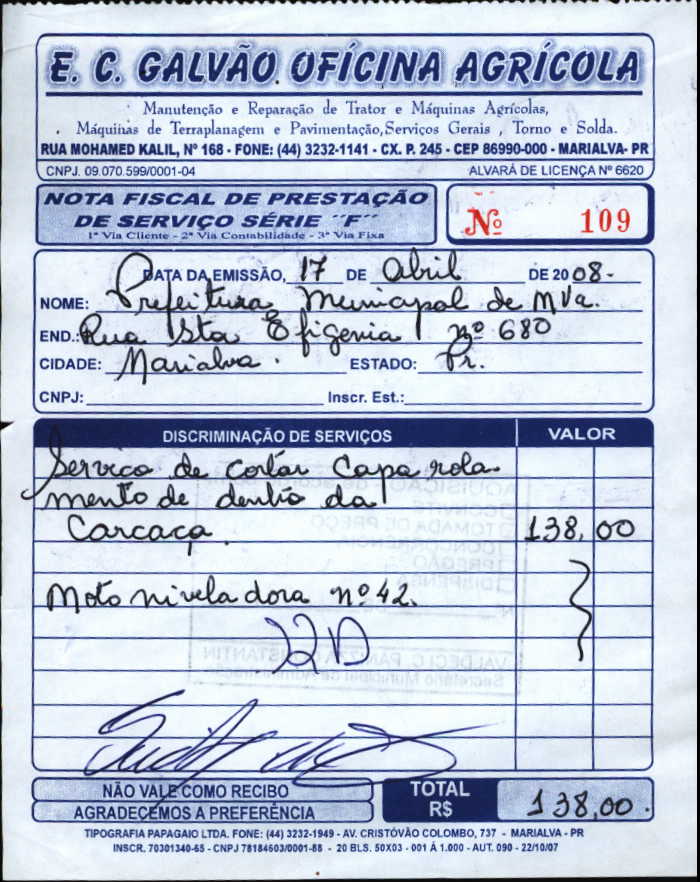 E. C. GALVÃO OFÍCINA AGRÍCOLA
Manutenção e Reparação de Trator e Máquinas Agrícolas,
Máquinas de Terraplanagem e Pavimentação, Serviços Gerais , Torno e Solda.
RUA MOHAMED KALIL, Nº 168 - FONE: (44) 3232-1141 - CX. P. 245 - CEP 86990-000 - MARIALVA- PR
CNPJ. 09.070.599/0001-04 ALVARÁ DE LICENÇA Nº 6620
NOTA FISCAL DE PRESTAÇÃO
DE SERVIÇO SÉRIE "F"
1ª Via Cliente - 2ª Via Contabilidade - 3ª Via Fixa
Nº 109
DATA DA EMISSÃO, 17 DE Abril DE 2008.
NOME: Prefeitura Municipal de Mva.
END.: Rua Sta Efigenia nº 680
CIDADE: Marialva. ESTADO: Pr.
CNPJ: Inscr. Est.:
DISCRIMINAÇÃO DE SERVIÇOS VALOR
Serviço de cortar Capa rola
mento de dentro da
Carcaça. 138,00
Moto niveladora nº 42.
NÃO VALE COMO RECIBO
AGRADECEMOS A PREFERÊNCIA
TOTAL
R$ 138,00.
TIPOGRAFIA PAPAGAIO LTDA. FONE: (44) 3232-1949 - AV. CRISTÓVÃO COLOMBO, 737 - MARIALVA - PR
INSCR. 70301340-65 - CNPJ 78184603/0001-88 - 20 BLS. 50X03 - 001 Á 1.000 - AUT. 090 - 22/10/07